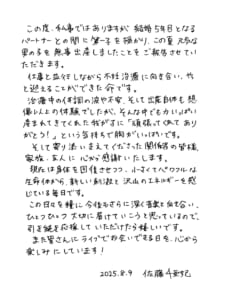 この度、私事ではありますが、結婚5年目となる
パートナーとの間に第一子を授かり、この夏 元気な
男の子を無事出産しましたことをご報告させて
いただきます。
仕事と並行しながら不妊治療に向き合い、や
っと迎えることができた命です。
治療中の体調の波や不安、そして出産自体も想
像以上の体験でしたが、そんな中でも力いっぱい
産まれてきてくれた我が子に「頑張ってくれてあり
がとう！」という気持ちで胸がいっぱいです。
そして寄り添い支えてくださった関係者の皆様、
家族、友人に心から感謝いたします。
現在は身体を回復させつつ、小さくてパワフルな
生命体から、新しい刺激と沢山のエネルギーを感
じている毎日です。
この日々を糧に今後もさらに深く音楽と向き合い、
ひとつひとつ大切に届けていこうと思っているので、
引き続き応援していただけたら嬉しいです。
また皆さんにライブでお会いできる日を、心から
楽しみにしています！
2025.8.9 佐藤千亜妃